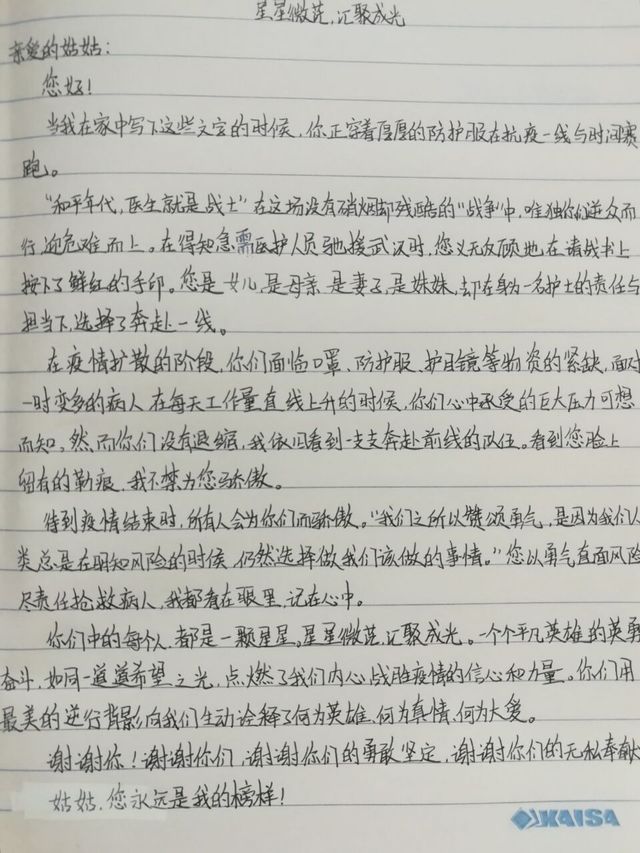 星星微芒,汇聚成光
亲爱的姑姑:
您好!
当我在家中写下这些文字的时候,你正穿着厚厚的防护服在抗疫一线与时间赛
跑。
“和平年代,医生就是战士”在这场没有硝烟却残酷的“战争”中,唯独你们逆众而
行,迎危难而上。在得知急需医护人员驰援武汉时,您义无反顾地在请战书上
按下了鲜红的手印。您是女儿,是母亲,是妻子,是妹妹,却在身为一名护士的责任与
担当下,选择了奔赴一线。
在疫情扩散的阶段,你们面临口罩、防护服、护目镜等物资的紧缺,面对
一时变多的病人,在每天工作量直线上升的时候,你们心中承受的巨大压力可想
而知。然而你们没有退缩,我依旧看到一支支奔赴前线的队伍。看到您脸上
留有的勒痕,我不禁为您骄傲。
待到疫情结束时,所有人会为你们而骄傲。“我们之所以赞颂勇气,是因为我们人
类总是在明知风险的时候,仍然选择做我们该做的事情。”您以勇气直面风险
尽责任抢救病人,我都看在眼里,记在心中。
你们中的每个人,都是一颗星星。星星微芒,汇聚成光。一个个平凡英雄的英勇
奋斗,如同一道道希望之光,点燃了我们内心战胜疫情的信心和力量。你们用
最美的逆行背影向我们生动诠释了何为英雄,何为真情,何为大爱。
谢谢你!谢谢你们,谢谢你们的勇敢坚定,谢谢你们的无私奉献
姑姑,您永远是我的榜样!
KAISA